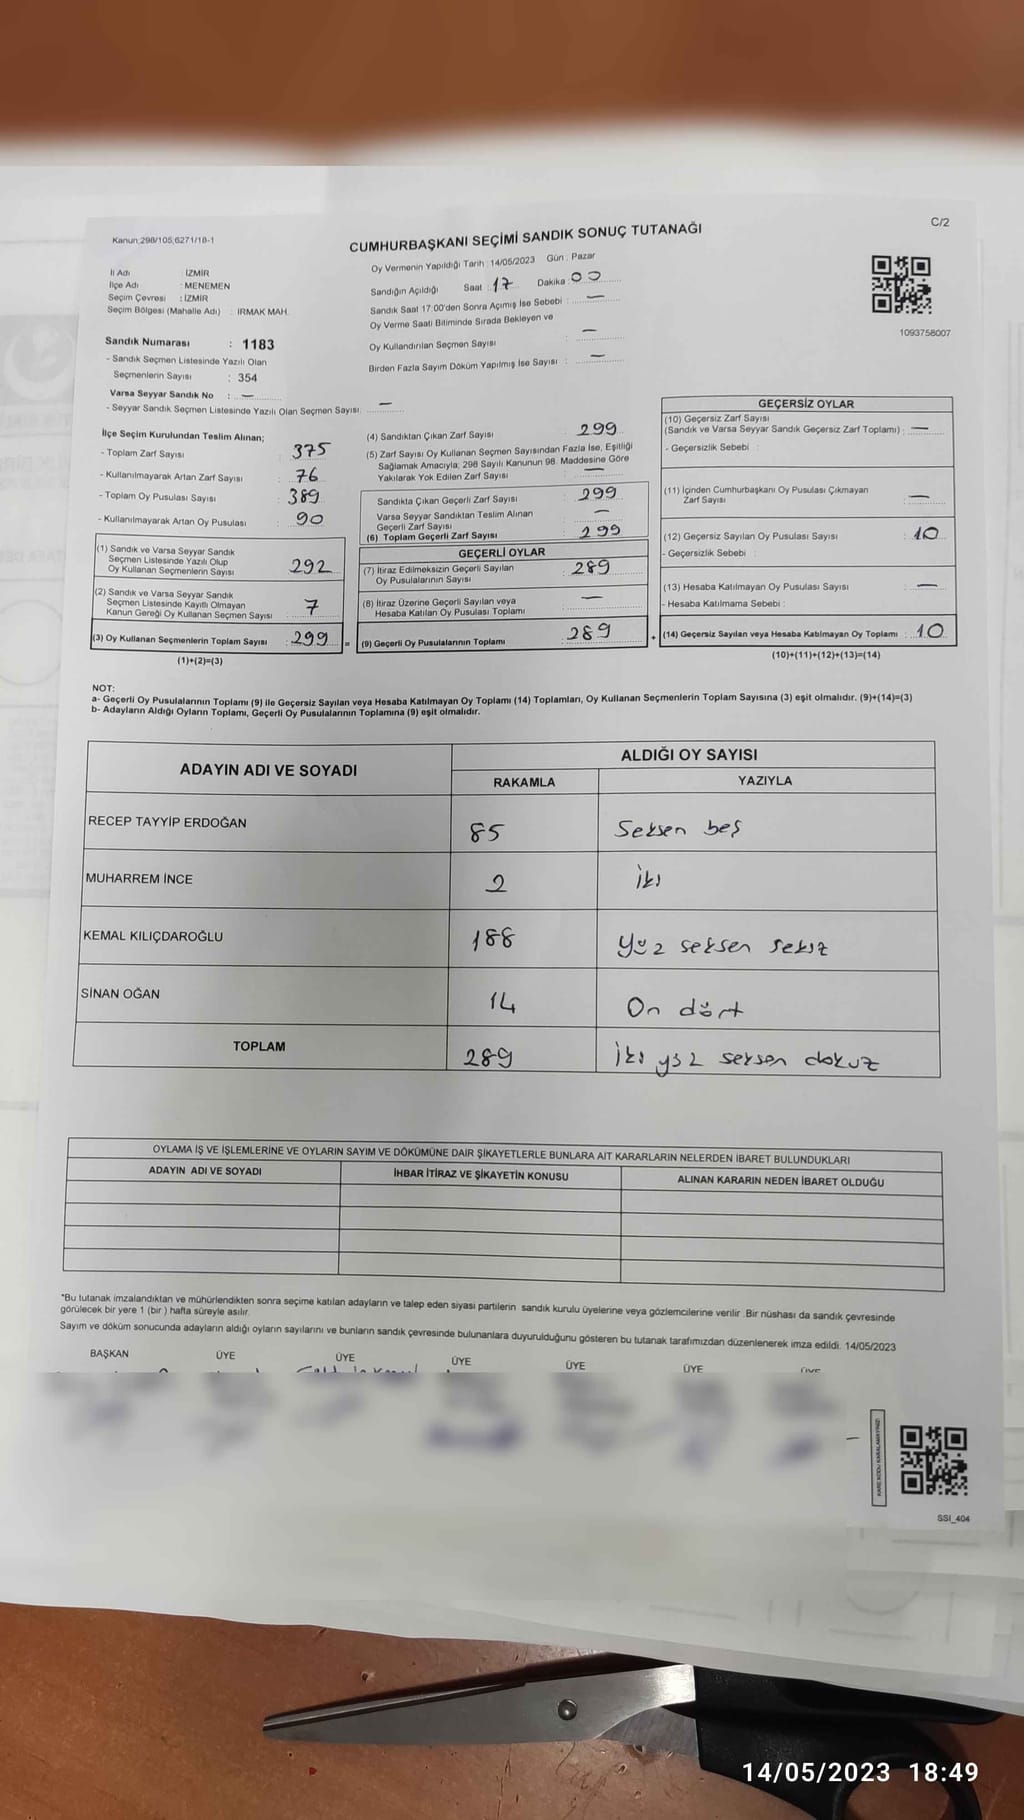 Kanun;298/105;6271/18-1
C/2
CUMHURBAŞKANI SEÇİMİ SANDIK SONUÇ TUTANAĞI
İl Adı : İZMİR
İlçe Adı : MENEMEN
Seçim Çevresi : İZMİR
Seçim Bölgesi (Mahalle Adı) : IRMAK MAH.
Sandık Numarası : 1183
- Sandık Seçmen Listesinde Yazılı Olan
Seçmenlerin Sayısı : 354
Varsa Seyyar Sandık No : —
- Seyyar Sandık Seçmen Listesinde Yazılı Olan Seçmen Sayısı: —
Oy Vermenin Yapıldığı Tarih : 14/05/2023 Gün : Pazar
Sandığın Açıldığı Saat : 17 Dakika : 00
Sandık Saat 17:00'den Sonra Açımış İse Sebebi : —
Oy Verme Saati Bitiminde Sırada Bekleyen ve
Oy Kullandırılan Seçmen Sayısı —
Birden Fazla Sayım Döküm Yapılmış İse Sayısı : —
1093758007
İlçe Seçim Kurulundan Teslim Alınan;
- Toplam Zarf Sayısı : 375
- Kullanılmayarak Artan Zarf Sayısı : 76
- Toplam Oy Pusulası Sayısı : 389
- Kullanılmayarak Artan Oy Pusulası : 90
(1) Sandık ve Varsa Seyyar Sandık
Seçmen Listesinde Yazılı Olup
Oy Kullanan Seçmenlerin Sayısı 292
(2) Sandık ve Varsa Seyyar Sandık
Seçmen Listesinde Kayıtlı Olmayan
Kanun Gereği Oy Kullanan Seçmen Sayısı : 7
(3) Oy Kullanan Seçmenlerin Toplam Sayısı : 299 =
(1)+(2)=(3)
(4) Sandıktan Çıkan Zarf Sayısı 299
(5) Zarf Sayısı Oy Kullanan Seçmen Sayısından Fazla İse, Eşitliği
Sağlamak Amacıyla; 298 Sayılı Kanunun 98. Maddesine Göre
Yakılarak Yok Edilen Zarf Sayısı : —
Sandıkta Çıkan Geçerli Zarf Sayısı : 299
Varsa Seyyar Sandıktan Teslim Alınan
Geçerli Zarf Sayısı —
(6) Toplam Geçerli Zarf Sayısı : 299
GEÇERLİ OYLAR
(7) İtiraz Edilmeksizin Geçerli Sayılan
Oy Pusulalarının Sayısı : 289
(8) İtiraz Üzerine Geçerli Sayılan veya
Hesaba Katılan Oy Pusulası Toplamı : —
(9) Geçerli Oy Pusulalarının Toplamı : 289 +
GEÇERSİZ OYLAR
(10) Geçersiz Zarf Sayısı
(Sandık ve Varsa Seyyar Sandık Geçersiz Zarf Toplamı) : —
- Geçersizlik Sebebi :
(11) İçinden Cumhurbaşkanı Oy Pusulası Çıkmayan
Zarf Sayısı : —
(12) Geçersiz Sayılan Oy Pusulası Sayısı : 10
- Geçersizlik Sebebi :
(13) Hesaba Katılmayan Oy Pusulası Sayısı : —
- Hesaba Katılmama Sebebi :
(14) Geçersiz Sayılan veya Hesaba Katılmayan Oy Toplamı : 10
(10)+(11)+(12)+(13)=(14)
NOT:
a- Geçerli Oy Pusulalarının Toplamı (9) ile Geçersiz Sayılan veya Hesaba Katılmayan Oy Toplamı (14) Toplamları, Oy Kullanan Seçmenlerin Toplam Sayısına (3) eşit olmalıdır. (9)+(14)=(3)
b- Adayların Aldığı Oyların Toplamı, Geçerli Oy Pusulalarının Toplamına (9) eşit olmalıdır.
ADAYIN ADI VE SOYADI
ALDIĞI OY SAYISI
RAKAMLA YAZIYLA
RECEP TAYYİP ERDOĞAN 85 Seksen beş
MUHARREM İNCE 2 İki
KEMAL KILIÇDAROĞLU 188 Yüz seksen sekiz
SİNAN OĞAN 14 On dört
TOPLAM 289 İki yüz seksen dokuz
OYLAMA İŞ VE İŞLEMLERİNE VE OYLARIN SAYIM VE DÖKÜMÜNE DAİR ŞİKAYETLERLE BUNLARA AİT KARARLARIN NELERDEN İBARET BULUNDUKLARI
ADAYIN ADI VE SOYADI İHBAR İTİRAZ VE ŞİKAYETİN KONUSU ALINAN KARARIN NEDEN İBARET OLDUĞU
*Bu tutanak imzalandıktan ve mühürlendikten sonra seçime katılan adayların ve talep eden siyasi partilerin sandık kurulu üyelerine veya gözlemcilerine verilir. Bir nüshası da sandık çevresinde
görülecek bir yere 1 (bir) hafta süreyle asılır.
Sayım ve döküm sonucunda adayların aldığı oyların sayılarını ve bunların sandık çevresinde bulunanlara duyurulduğunu gösteren bu tutanak tarafımızdan düzenlenerek imza edildi. 14/05/2023
BAŞKAN ÜYE ÜYE ÜYE ÜYE ÜYE
KARE KODU KARALAMAYINIZ!
SSI_404
14/05/2023 18:49